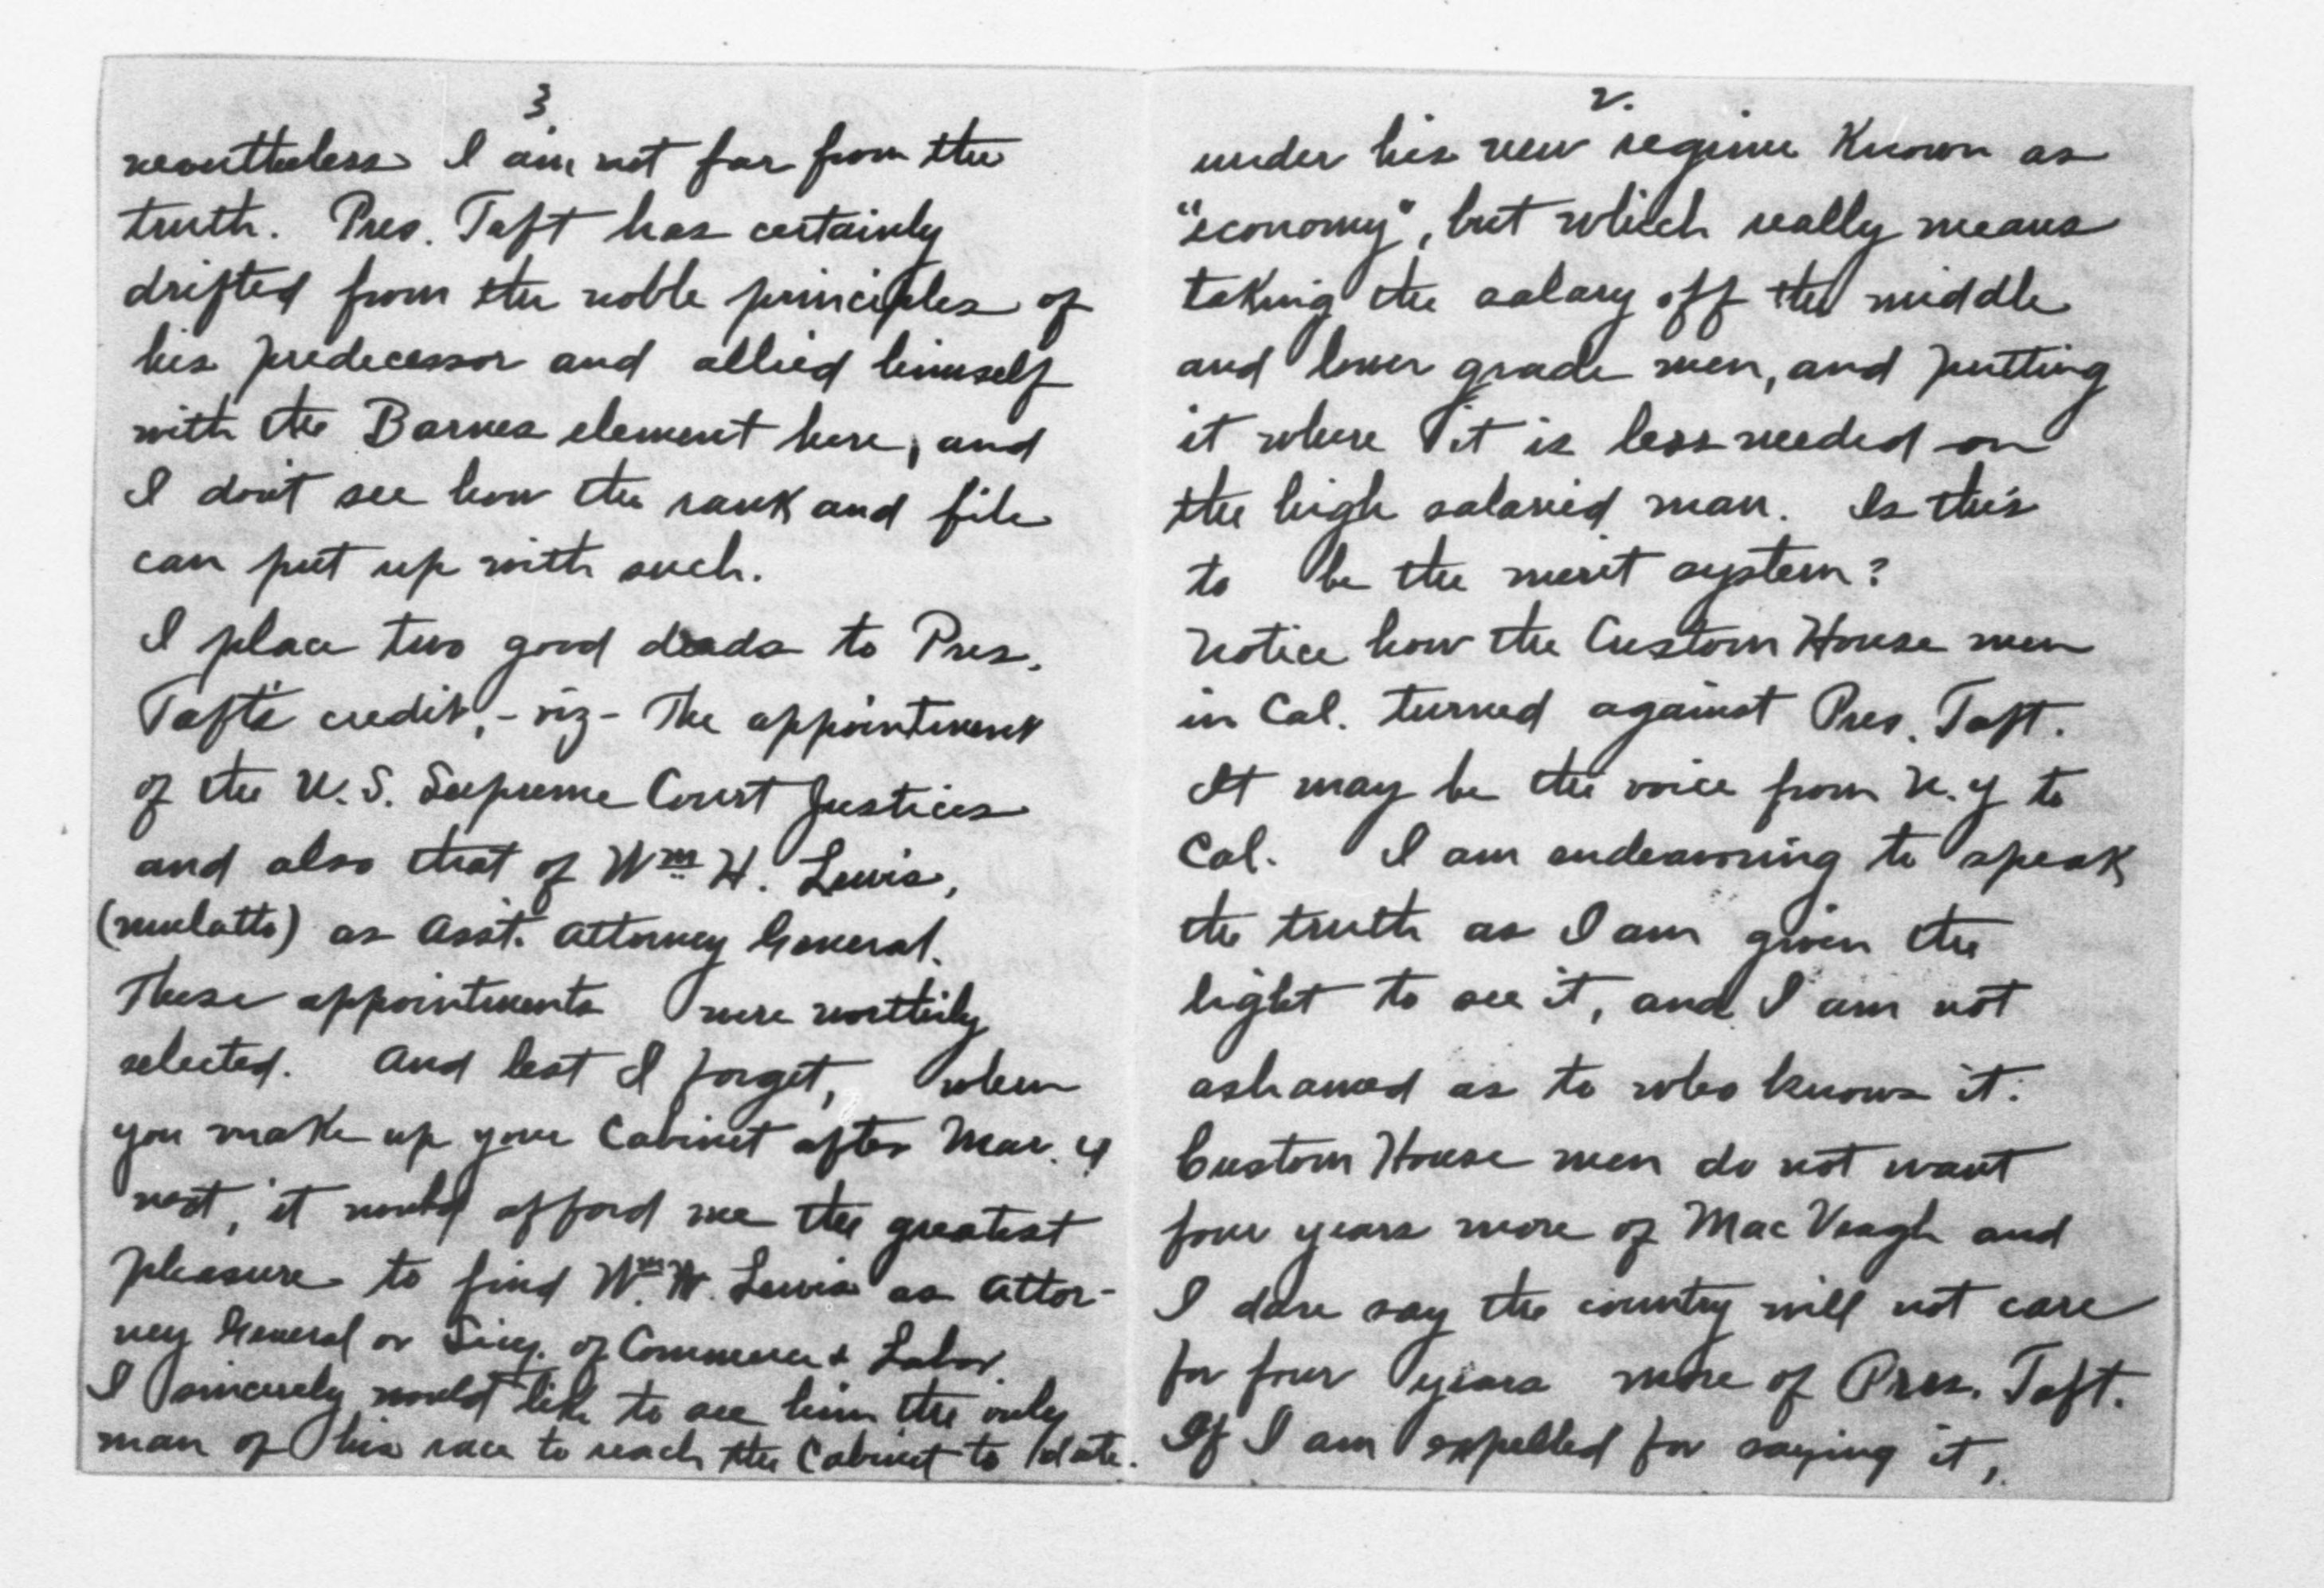 2.
under his new regime Known as
"economy", but which really means
taking the salary off the middle
and lower grade men, and putting
it where it is less needed on
the high salaried man. Is this
to be the merit system?
Notice how the Custom House men
in Cal. turned against Pres. Taft.
It may be the voice from N.Y to
Cal. I am endeavoring to speak
the truth as I am given the
light to see it, and I am not
ashamed as to who knows it.
Custom House men do not want
four years more of Mac Veagh and
I dare say the country will not care
for four years more of Pres. Taft.
If I am expelled for saying it,
3.
nevertheless I am not far from the
truth. Pres. Taft has certainly
drifted from the noble principles of
his predecessor and allied himself
with the Barnes element here, and
I don't see how the rank and file
can put up with such.
I place two good deads to Pres.
Taft's credit, - viz - The appointment
of the U.S. Supreme Court Justices
and also that of Wm H. Lewis,
(mulatto) as Asst. Attorney General.
These appointments were worthily
selected. And lest I forget, when
you make up your Cabinet after Mar. 4
next, it would afford me the greatest
pleasure to find Wm. H. Lewis as Attor-
ney General or Secy. of Commerce & Labor.
I sincerely would like to see him the only
man of his race to reach the Cabinet to date.